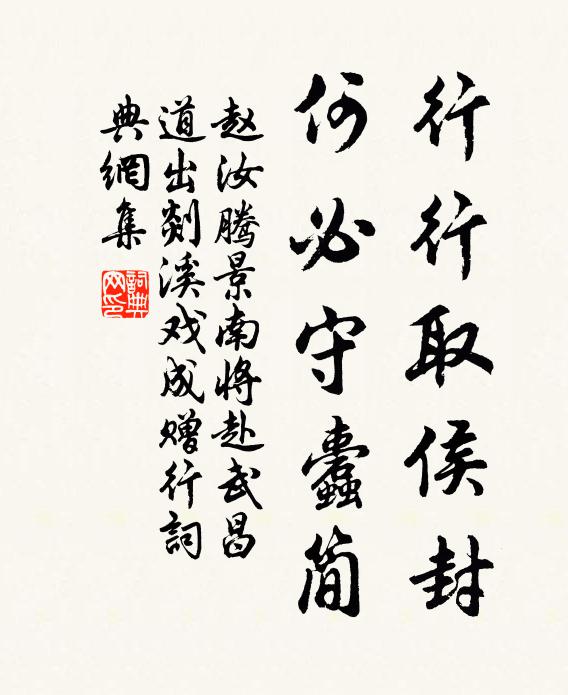 行行取侯封
何必守蠹简
赵汝腾景南将赴武昌
道出剡溪戏成赠行詞
典網集
詞典網印